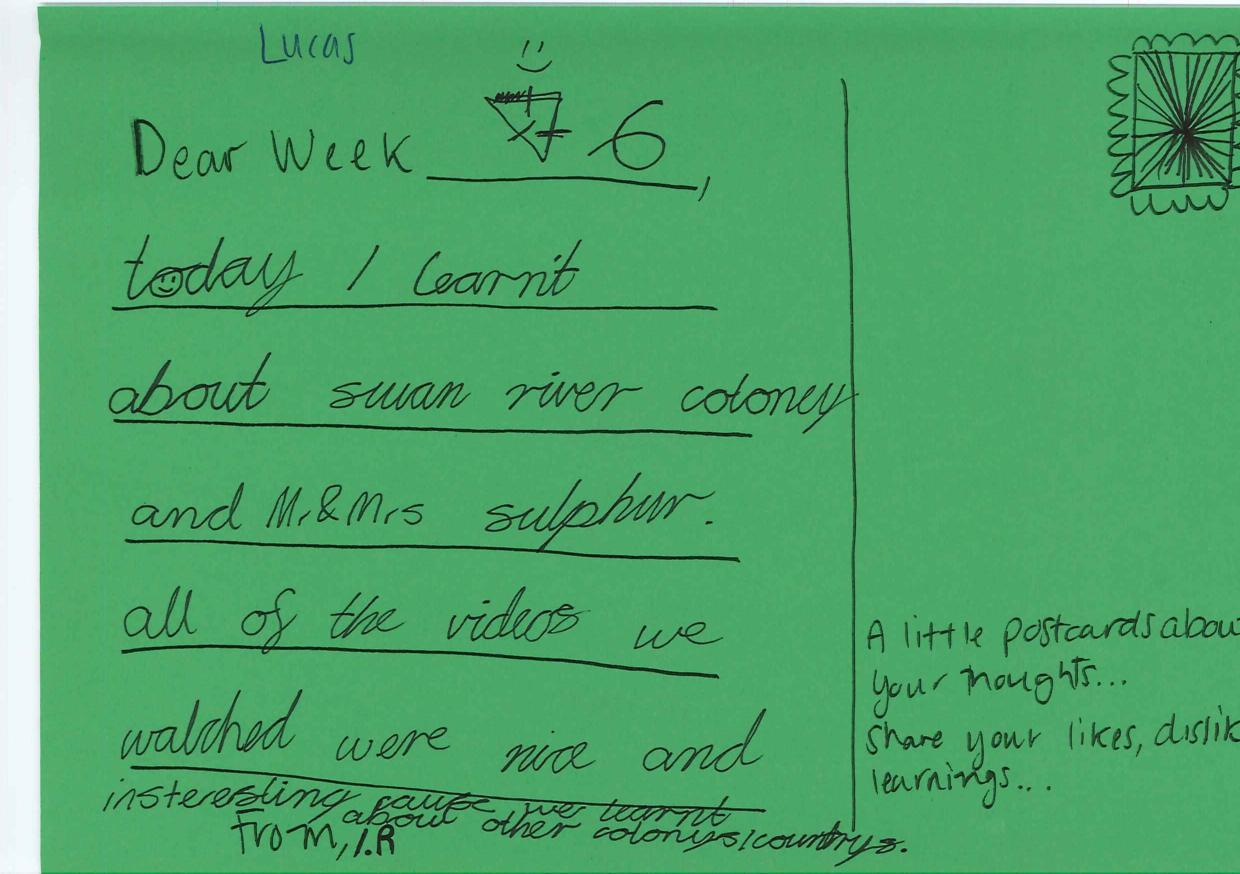 Lucas
Dear Week 6,
today I learnt
about swan river coloney
and Mr&Mrs sulphur.
all of the videos we
watched were nice and
insteresting cause we learnt
about other colonys/countrys.
From, I.R
A little postcards about
your thoughts...
share your likes, dislik
learnings...